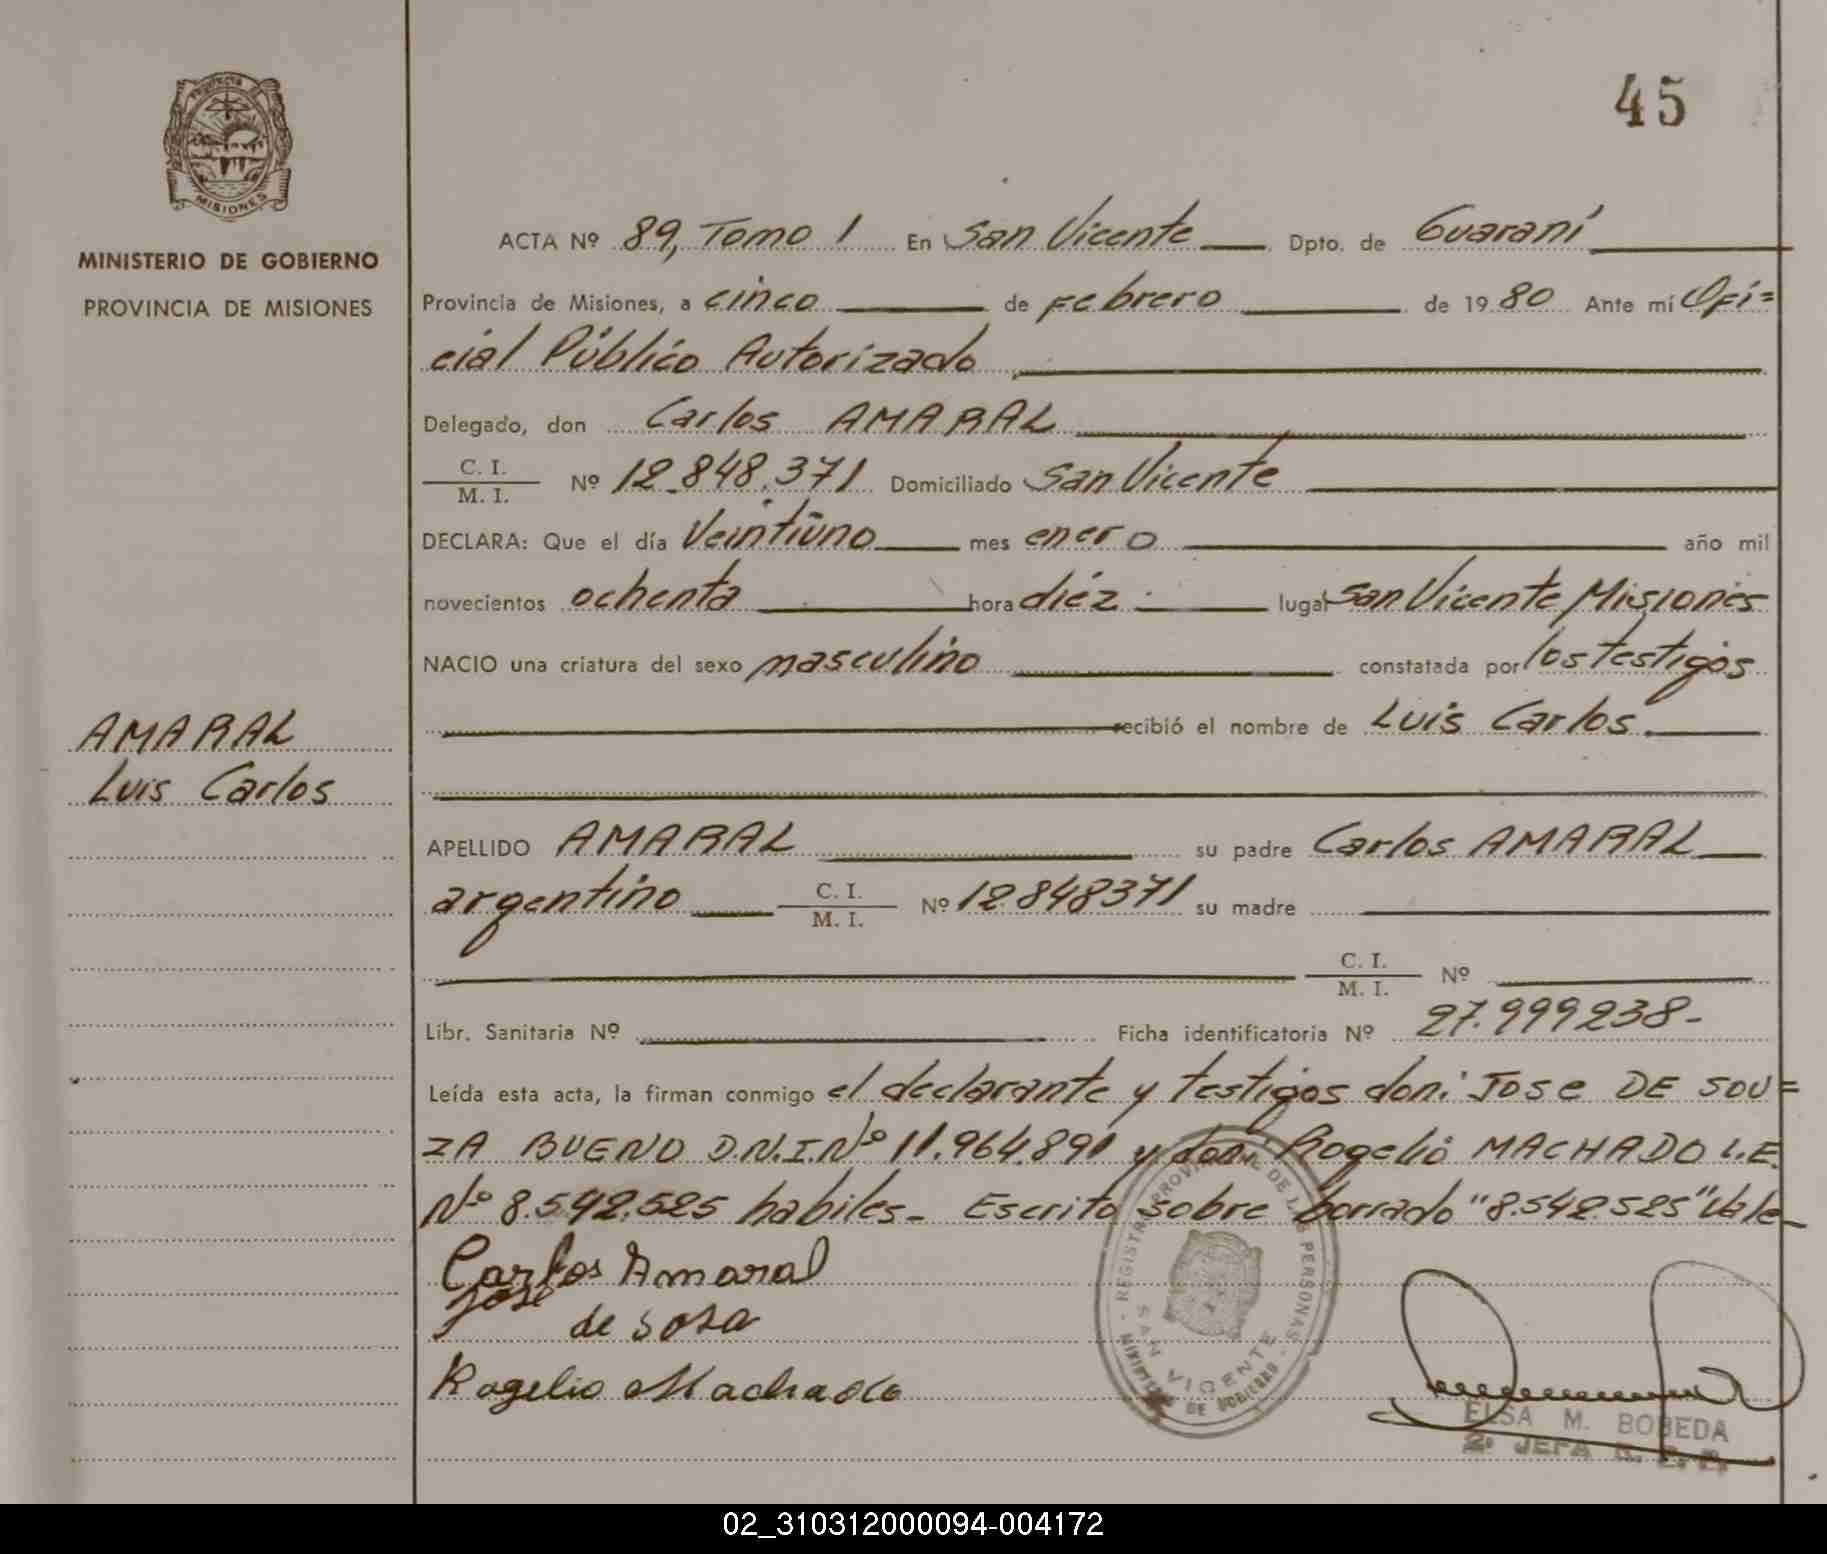 45
PROVINCIA DE
MISIONES
MINISTERIO DE GOBIERNO
PROVINCIA DE MISIONES
AMARAL
Luis Carlos
ACTA Nº 89, Tomo 1 En San Vicente Dpto. de Guaraní
Provincia de Misiones, a cinco de Febrero de 1980 Ante mí Ofi=
cial Público Autorizado
Delegado, don Carlos AMARAL
C. I.
M. I. Nº 12.848.371 Domiciliado San Vicente
DECLARA: Que el día Veintiuno mes enero año mil
novecientos ochenta hora diéz lugar San Vicente Misiones
NACIO una criatura del sexo masculino constatada por los testigos
recibió el nombre de Luis Carlos
APELLIDO AMARAL su padre Carlos AMARAL
argentino C. I.
M. I. Nº 12848371 su madre
C. I.
M. I. Nº
Libr. Sanitaria Nº Ficha identificatoria Nº 27.999238-
Leída esta acta, la firman conmigo el declarante y testigos don: Jose DE SOU=
ZA BUENO D.N.I.Nº 11.964.891 y don: Rogelio MACHADO L.E.
Nº 8.542.525 habiles- Escrito sobre borrado "8.542.525" Vale-
Carlos Amaral
Jose de Sosa
Rogelio Machado
REGISTRO PROVINCIAL DE LAS PERSONAS
SAN VICENTE
MINISTERIO DE GOBIERNO
ELSA M. BOBEDA
2ª JEFA R. P. P.
02_310312000094-004172